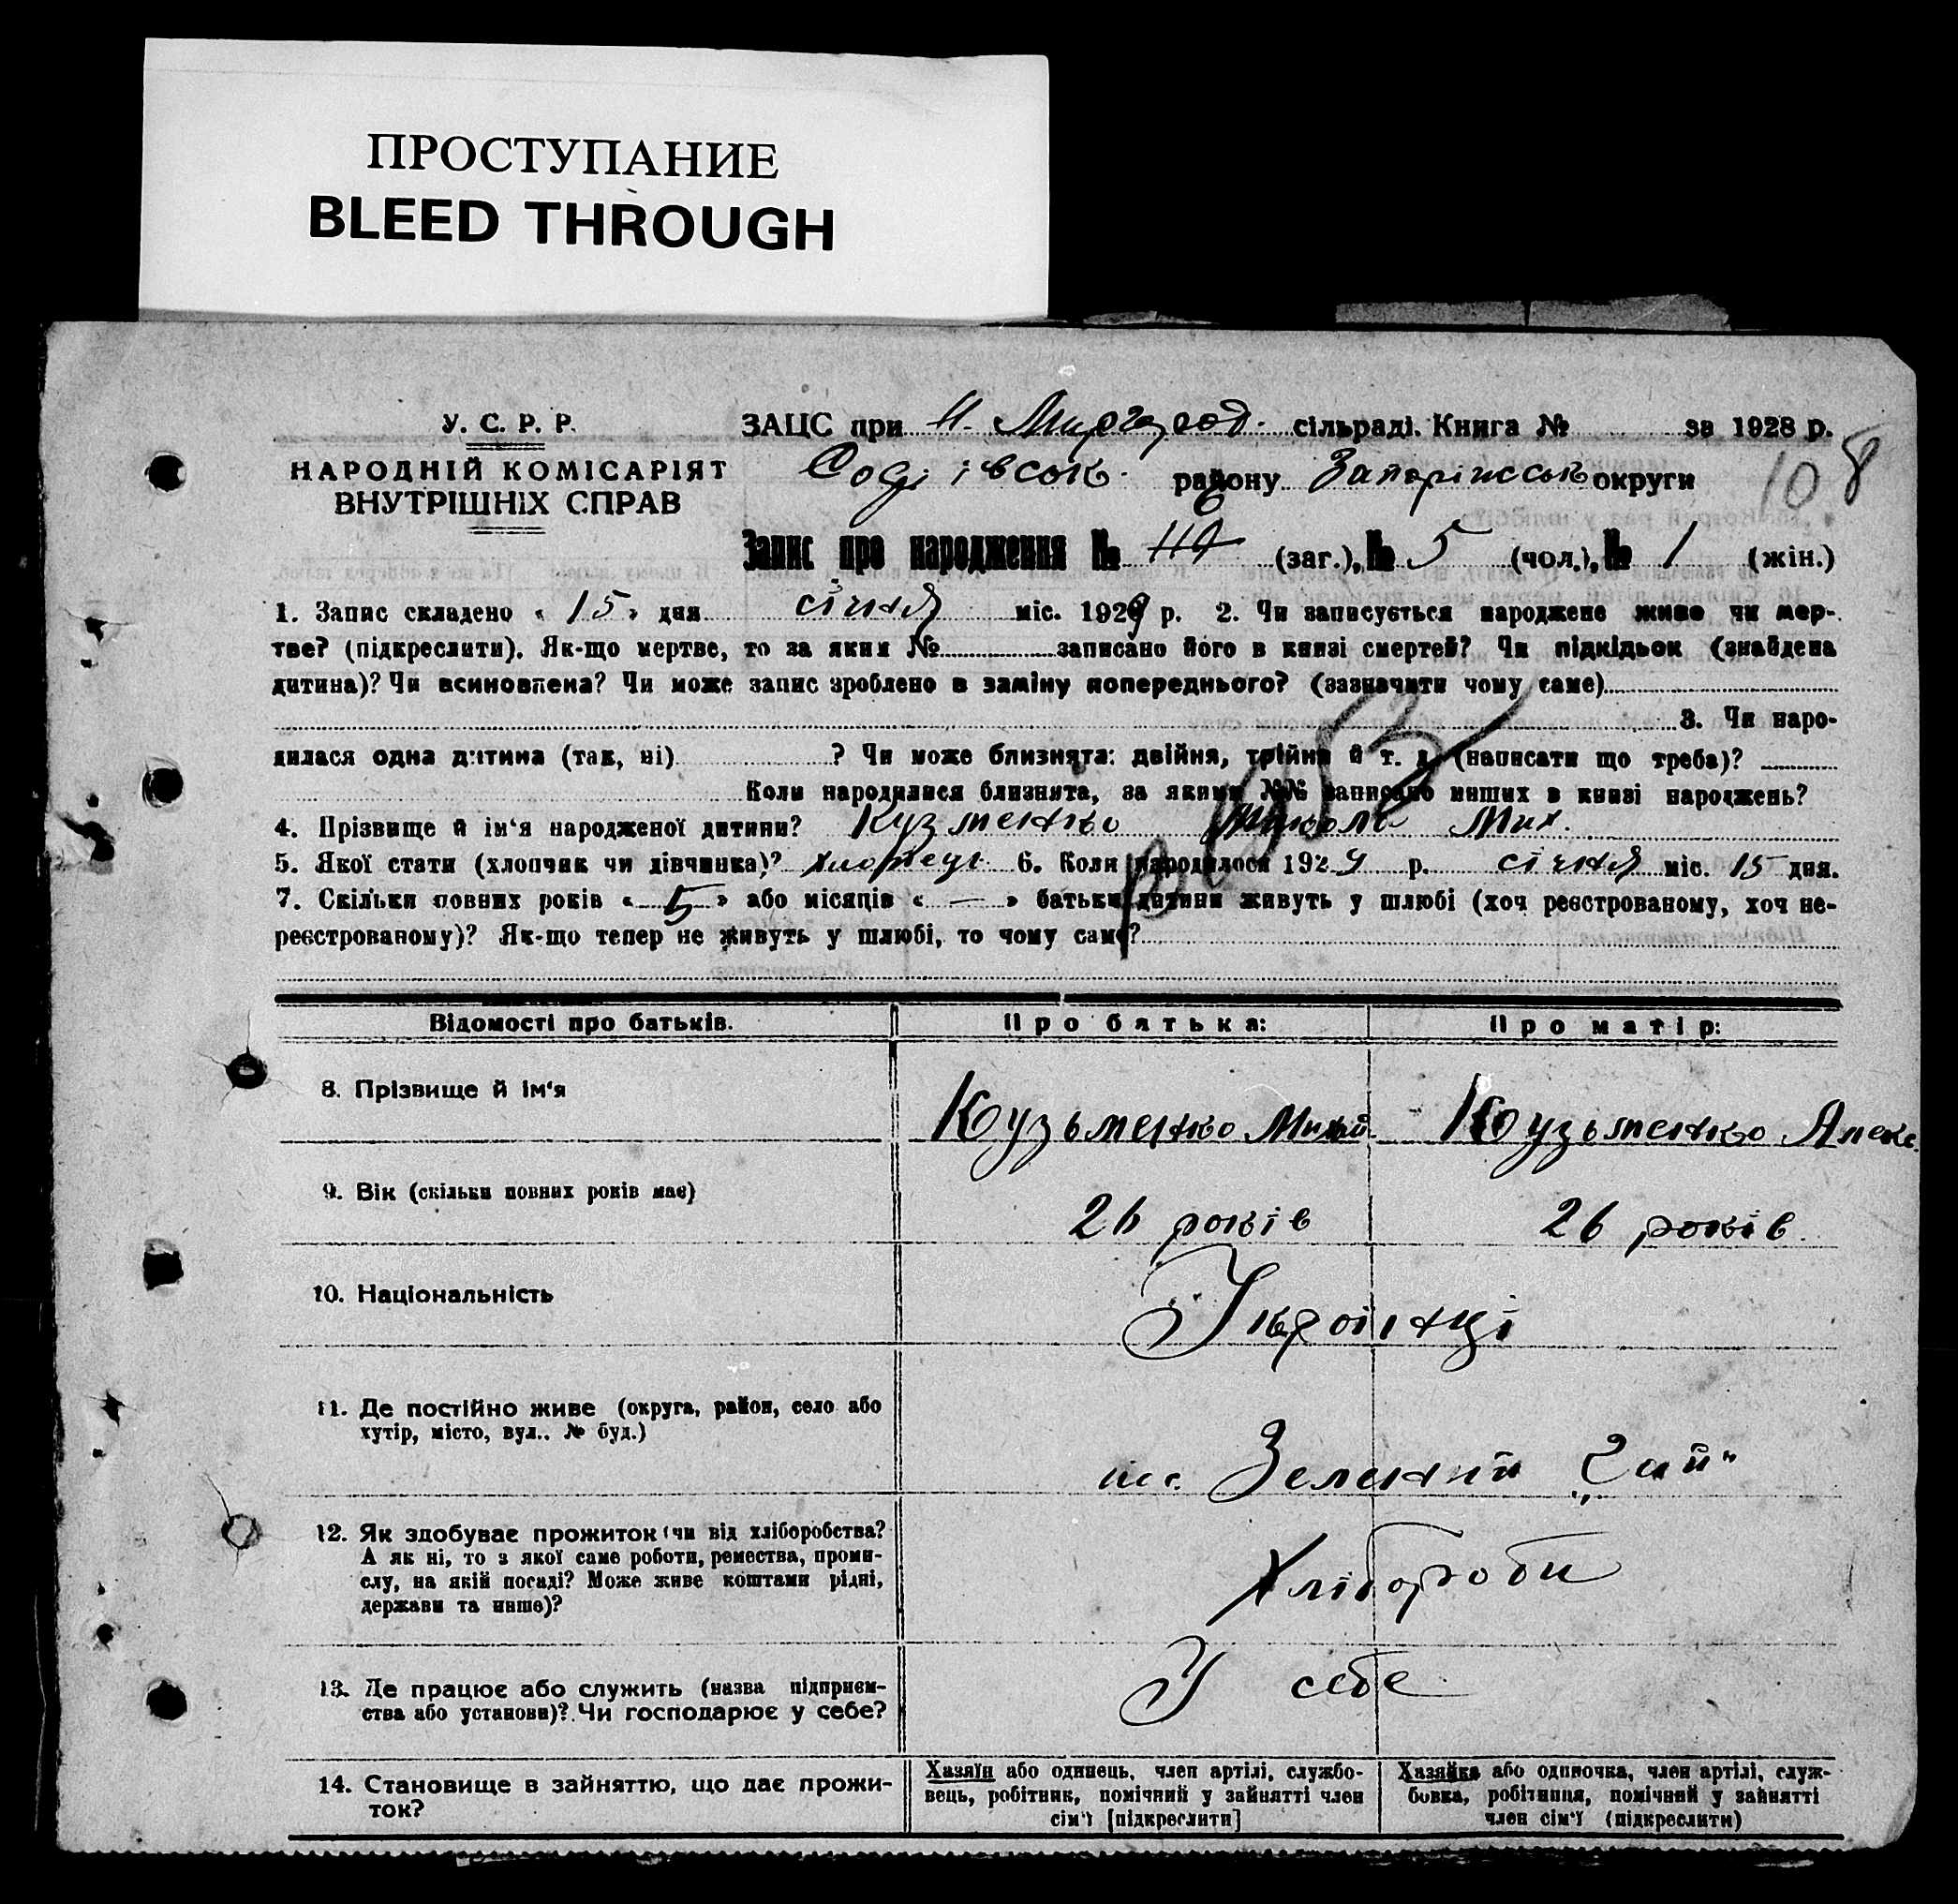 ПРОСТУПАНИЕ
BLEED THROUGH
У. С. Р. Р.
НАРОДНІЙ КОМІСАРІЯТ
ВНУТРІШНІХ СПРАВ
ЗАЦС при Н. Миргород. сільраді. Книга № за 1928 р.
Софіївськ. району Запоріжськ округи 108
Запис про народження № 6 (заг.), № 5 (чол.), № 1 (жін.)
1. Запис складено « 15 » дня січня міс. 1929 р. 2. Чи записується народжене живе чи мер-
тве? (підкреслити). Як-що мертве, то за яким № записано його в книзі смертей? Чи підкідьок (знайдена
дитина)? Чи всиновлена? Чи може запис зроблено в заміну попереднього? (зазначити чому саме)
3. Чи наро-
дилася одна дитина (так, ні) ? Чи може близнята: двійня, трійня й т. д. (написати що треба)?
Коли народилися близнята, за якими №№ записано инших в книзі народжень?
4. Прізвище й ім'я народженої дитини? Кузменко Микола Мих.
5. Якої стати (хлопчик чи дівчинка)? хлопець 6. Коли народилося 1929 р. січня міс. 15 дня.
7. Скільки повних років « 5 » або місяців « — » батьки дитини живуть у шлюбі (хоч реєстрованому, хоч не-
реєстрованому)? Як-що тепер не живуть у шлюбі, то чому саме?
Відомості про батьків. Про батька: Про матір:
8. Прізвище й ім'я Кузьменко Михай. Кузьменко Алекс.
9. Вік (скільки повних років має) 26 років 26 років
10. Національність Українці
11. Де постійно живе (округа, район, село або
хутір, місто, вул.. № буд.)
Зелений „Гай"
12. Як здобуває прожиток (чи від хліборобства?
А як ні, то з якої саме роботи, ремества, проми-
слу, на якій посаді? Може живе коштами рідні,
держави та инше)?
Хлібороби
13. Де працює або служить (назва підприєм-
ства або установи)? Чи господарює у себе?
У себе
14. Становище в зайняттю, що дає прожи-
ток?
Хазяїн або одинець, член артілі, службо-
вець, робітник, помічний у зайнятті член
сім'ї [підкреслити]
Хазяйка або одиночка, член артілі, служ-
бовка, робітниця, помічний у зайнятті
член сім'ї (підкреслити)